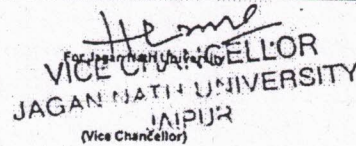 For Jagan Nath University
VICE CHANCELLOR
JAGAN NATH UNIVERSITY
JAIPUR
(Vice Chancellor)